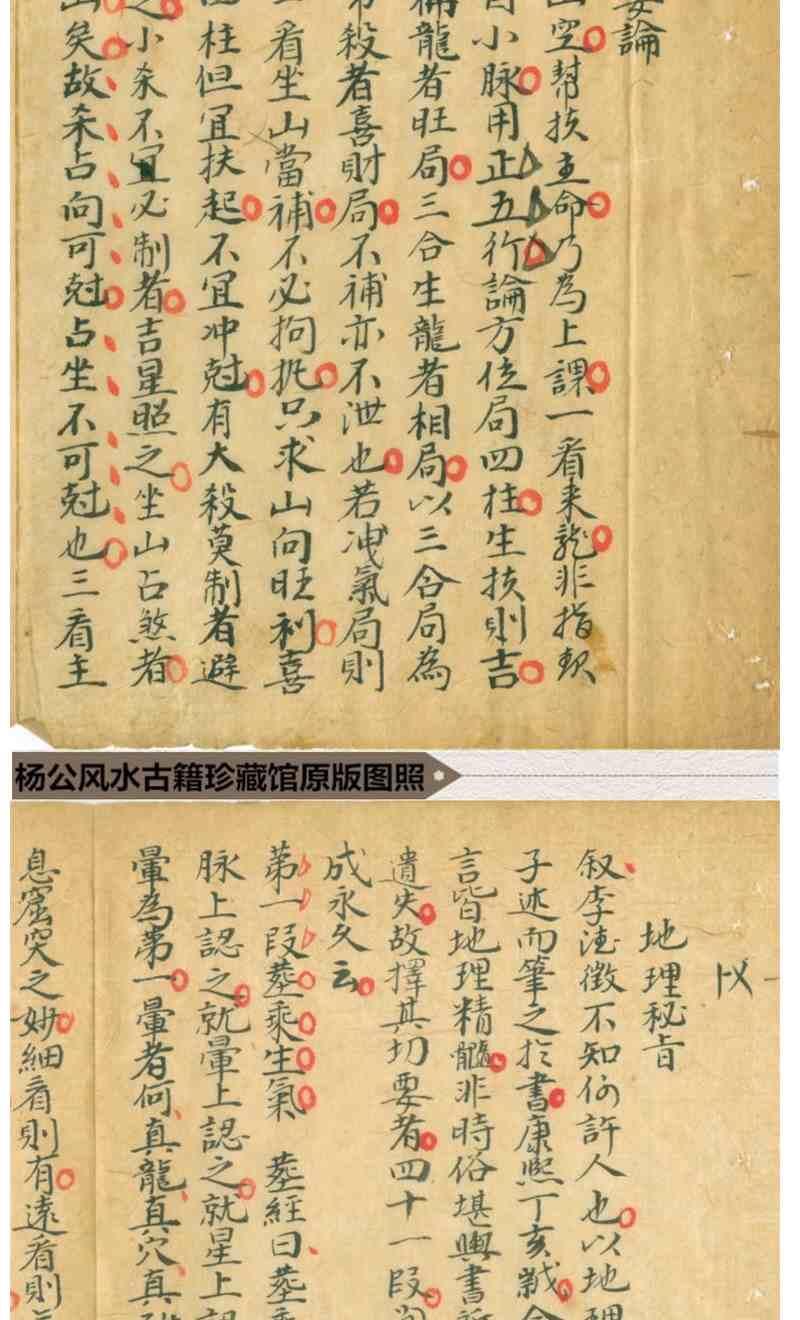 論
空幫扶主命乃為上課一看来龍非指欵
小脉用正五行論方位局四柱生扶則吉
龍者旺局三合生龍者相局以三合局為
殺者喜財局不補亦不泄也若洩氣局則
看坐山當補不必拘扺只求山向旺利喜
柱但宜扶起不宜冲尅有大殺莫制者避
之小杀不宜必制者吉星照之坐山占煞者
矣故杀占向可尅占坐不可尅也三看主
杨公风水古籍珍藏馆原版图照
地理秘旨
叙李徳徴不知何許人也以地理
子述而筆之於書康熙丁亥歲
言皆地理精髓非時俗堪輿書
遺失故擇其切要者四十一段
成永久云
第一段𦵏乘生氣 𦵏經曰𦵏
脉上認之就暈上認之就星上認
暈為第一暈者何真龍真穴真
息窟突之妙細看則有遠看則